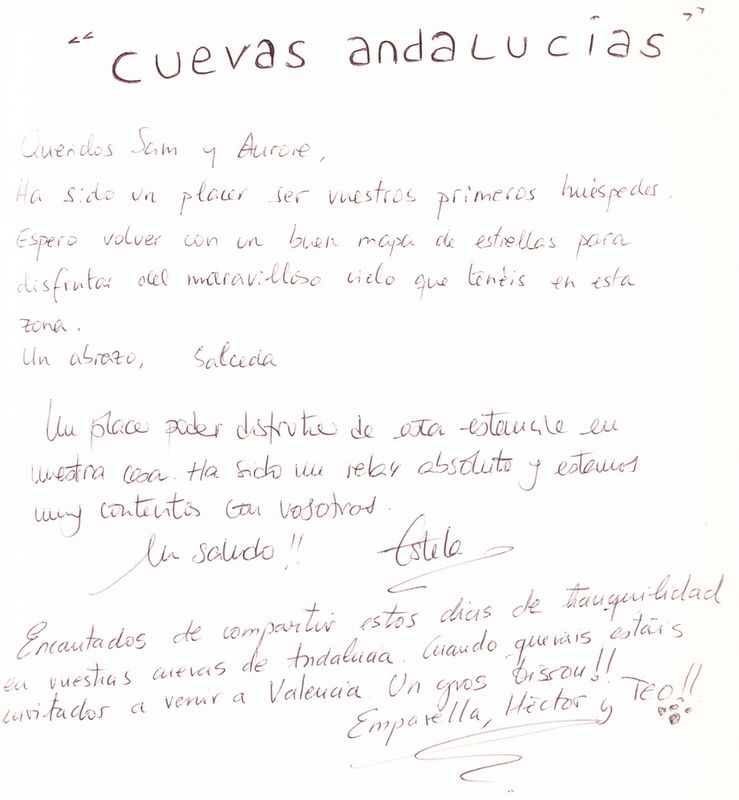 "cuevas andaLucias"
Queridos Sam y Aurore,
Ha sido un placer ser vuestros primeros huéspedes.
Espero volver con un buen mapa de estrellas para
disfrutar del maravilloso cielo que tenéis en esta
zona.
Un abrazo, Salceda
Un place poder disfrutar de esta estancia en
vuestra casa. Ha sido un relax absoluto y estamos
muy contentos con vosotros.
Un saludo!! Estela
Encantados de compartir estos dias de tranquilidad
en vuestras cuevas de Andalucia. Cuando querais estáis
invitados a venir a Valencia. Un gros bissou!!
Emparella, Hèctor y Teo!!